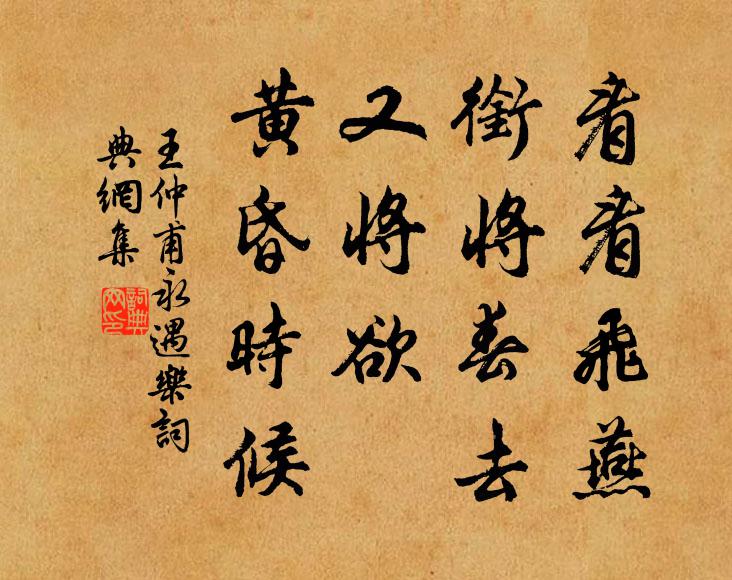 看看飛燕
銜將春去
又將欲
黃昏時候
王仲甫永遇樂詞
典網集
詞典
網印